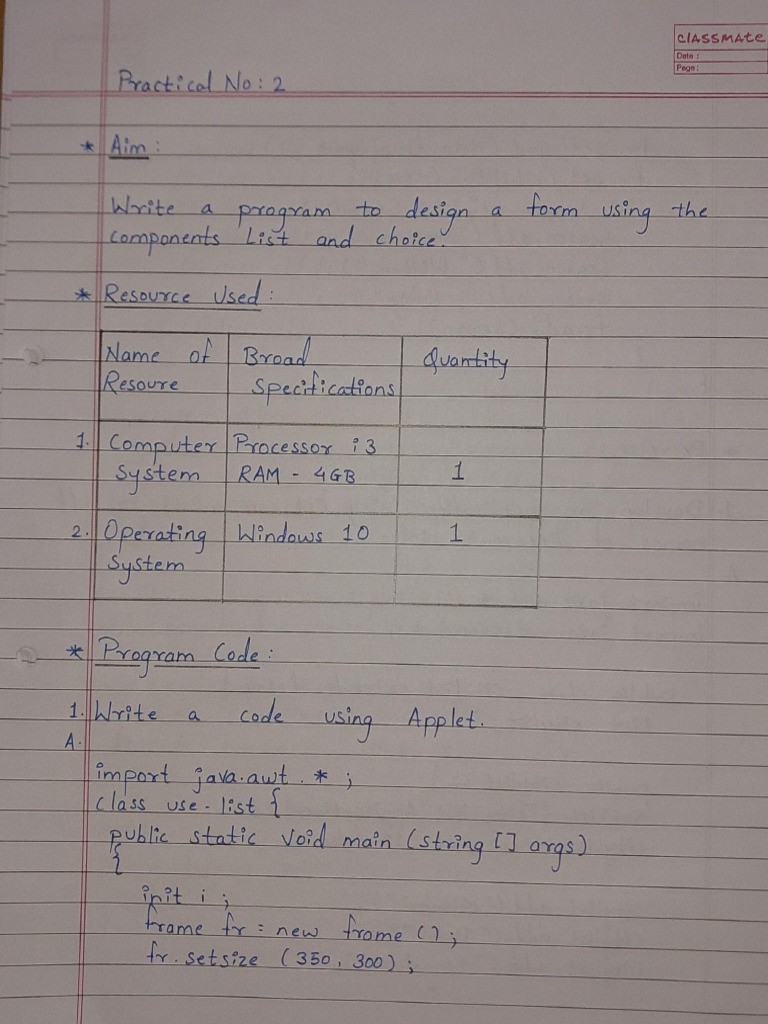 CLASSMATE
Date :
Page :
Practical No : 2
* Aim :
Write a program to design a form using the
components List and choice.
* Resource Used :
Name of Resoure | Broad Specifications | Quantity
1. Computer System | Processor i3 RAM - 4GB | 1
2. Operating System | Windows 10 | 1
* Program Code :
1. Write a code using Applet.
A.
import java.awt . * ;
class use-list {
public static void main (string [] args)
{
init i ;
frame fr = new frame () ;
fr.setsize (350, 300) ;